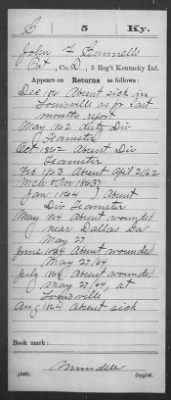 C 5 Ky.
John F Funnell
Pvt, Co. D, 5 Reg't Kentucky Inf.
Appears on Returns as follows:
Dec 1861 Absent sick in
Louisville as pr last
months report
May 1862 duty Div
Teamster
Oct 1862 Absent Div
Teamster
Feb 1863 Absent April 21/62
Mch & Nov 1863
Jan 1864 Absent
Div Teamster
May 1864 Absent wounded
near Dallas Ga
May 27
June 1864 Absent wounded
May 27/64
July 1864 Absent wounded
May 27/64, at
Louisville
Aug 1864 Absent sick
Book mark:
Copyist.